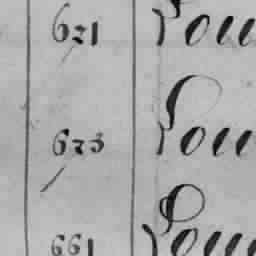 621 Lou
623 Lou
661 Lou